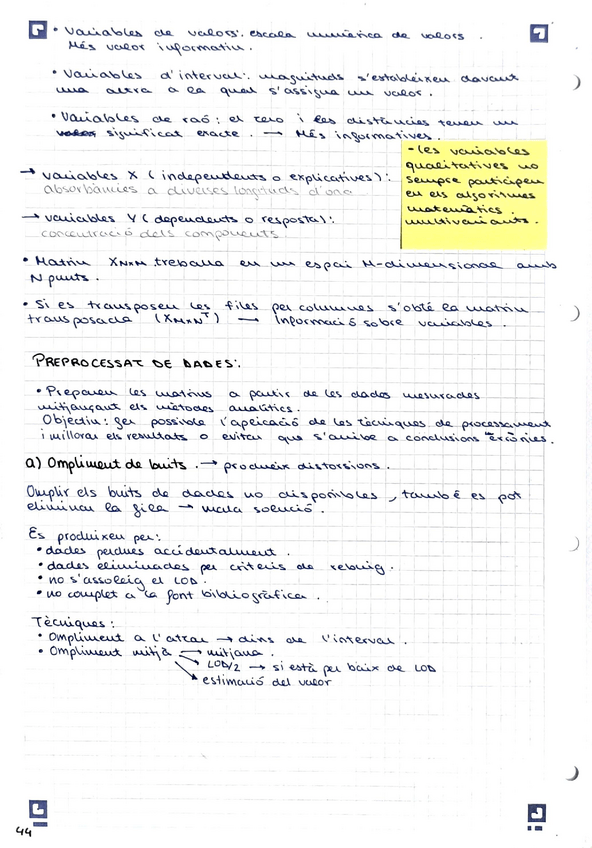 • Variables de valors: escala numèrica de valors.
Més valor informatiu.
• Variables d'interval: magnituds s'estableixen davant
una altra a la qual s'assigna un valor.
• Variables de raó: el zero i les distàncies tenen un
significat exacte. → Més informatives.
- les variables
qualitatives no
sempre participen
en els algoritmes
matemàtics
multivariants.
→ variables X (independents o explicatives):
absorbàncies a diverses longituds d'ona
→ variables Y (dependents o resposta):
concentració dels components.
• Matriu XNxM treballa en un espai M-dimensional amb
N punts.
• Si es transposen les files per columnes s'obté la matriu
transposada (XMxN^T) → Informació sobre variables.
PREPROCESSAT DE DADES:
• Preparen les matrius a partir de les dades mesurades
mitjançant els mètodes analítics.
Objectiu: fer possible l'aplicació de les tècniques de processament
i millorar els resultats o evitar que s'arribe a conclusions errònies.
a) Ompliment de buits. → produeix distorsions.
Omplir els buits de dades no disponibles, també es pot
eliminar la fila → mala solució.
Es produixen per:
• dades perdues accidentalment.
• dades eliminades per criteris de rebuig.
• no s'assoleig el LOD.
• no complet a la font bibliogràfica.
Tècniques:
• Ompliment a l'atzar → dins de l'interval.
• Ompliment mitjà → mitjana.
→ LOD/2 → si està per baix de LOD
→ estimació del valor
44